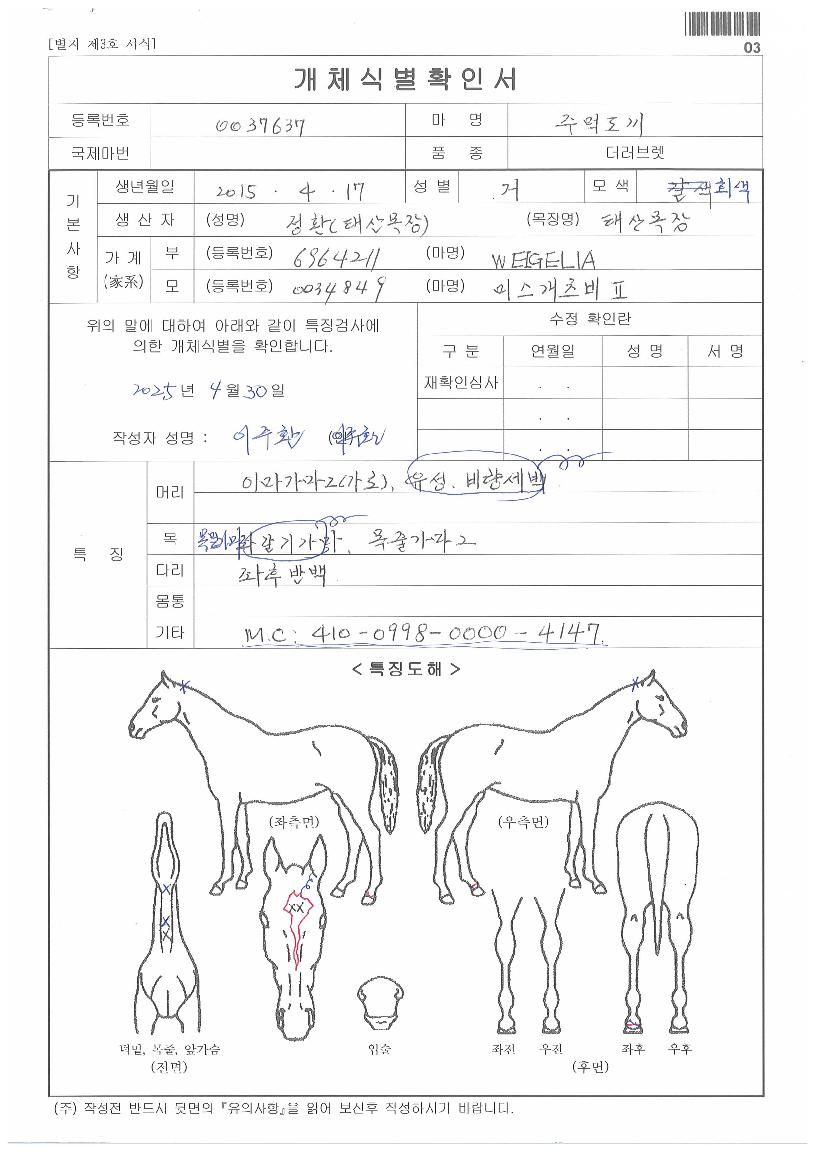 [별지 제3호 서식]
03
개체식별확인서
등록번호 0037637 마 명 주먹도끼
국제마번 품 종 더러브렛
기본사항
생년월일 2015 . 4 . 17 성 별 거 모 색 갈색 회색
생 산 자 (성명) 정환(태산목장) (목장명) 태산목장
가 계 (家系) 부 (등록번호) 6964211 (마명) WEIGELIA
모 (등록번호) 0034849 (마명) 미스개츠비 II
위의 말에 대하여 아래와 같이 특징검사에
의한 개체식별을 확인합니다.
2025년 4월 30일
작성자 성명 : 이주환
수정 확인란
구 분 연월일 성 명 서 명
재확인심사 . .
. .
. .
특 징
머리 이마가마2(가로), 유성. 비량세백
목 갈기가마, 목줄가마2
다리 좌후반백
몸통
기타 M.C: 410-0998-0000-4147
<특징도해>
(좌측면) (우측면)
턱밑, 목줄, 앞가슴 입술 좌전 우전 좌후 우후
(전면) (후면)
(주) 작성전 반드시 뒷면의 『유의사항』을 읽어 보신후 작성하시기 바랍니다.